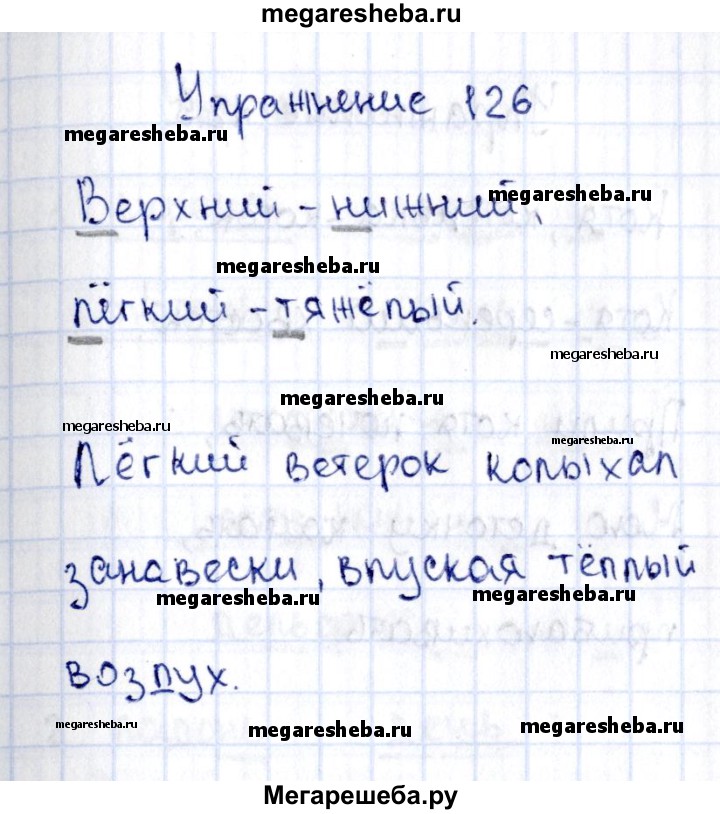 megaresheba.ru
Упражнение 126
megaresheba.ru
Верхний - нижний,
megaresheba.ru
megaresheba.ru
лёгкий - тяжёлый.
megaresheba.ru
megaresheba.ru
megaresheba.ru
megaresheba.ru
Лёгкий ветерок колыхал
занавески, впуская тёплый
megaresheba.ru
megaresheba.ru
воздух.
megaresheba.ru
megaresheba.ru
megaresheba.ru
Мегарешеба.ру